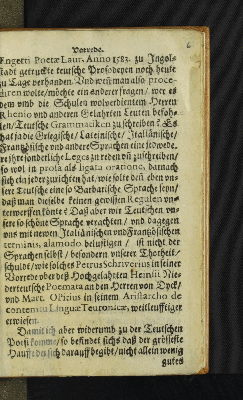 Vorrede. 6
Engerti Poetæ Laur. Anno 1583. zu Ingols
stadt getruckte teutsche Prosodeyen noch heute
zu Tage verhanden. Und wann man also proce-
diren wolte/ möchte ein anderer fragen/ wer es
dem umb die Schulen wolverdientem Herren
Rhenio und anderen Gelahrten Leuten befoh-
len/ Teutsche Grammatiken zu schreiben? Es
hat ja die Griegische/ Lateinische/ Italiänische/
Französische und andere Sprachen eine jedwede
re ihre sonderliche Leges zu reden uñ zuschreiben/
so wol in prosa als ligata oratione, darnach
sich ein jeder zurichten hat/ wie solte deñ eben un-
sere Teutsche eine so Barbarische Sprache seyn/
daß man dieselbe keinen gewissen Regulen un-
terwerffen könte? Daß aber wir Teutschen un-
sere so schöne Sprache verachten/ und dagegen
uns mit newen Italiänischen und Französischen
terminis, alamodo belustigen/ ist nicht der
Sprachen selbst/ besondern unserer Thorheit
schuldt/ wie solches Petrus Schriverius in seiner
Vorrede uber deß Hochgelahrten Heinsii Nie-
derteutsche Poemata an den Herren von Dyck/
und Mart. Opitius in seinem Aristarcho de
contemtu Linguæ Teutonicæ, weitleufftiger
erwiesen.
Damit ich aber widerumb zu der Teutschen
Poesi komme/ so befindet sichs daß der grösseste
Hauffe des sich darauff begibt/ nicht allein wenig
gutes